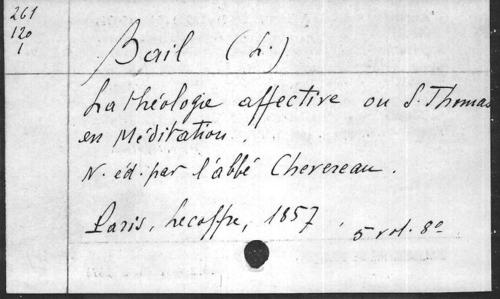 261
120
1
Bail (L.)
La théologie affective ou S. Thomas
en Méditation.
N. éd. par l'abbé Chevereau.
Paris, Lecoffre, 1857, 5 vol. 8°